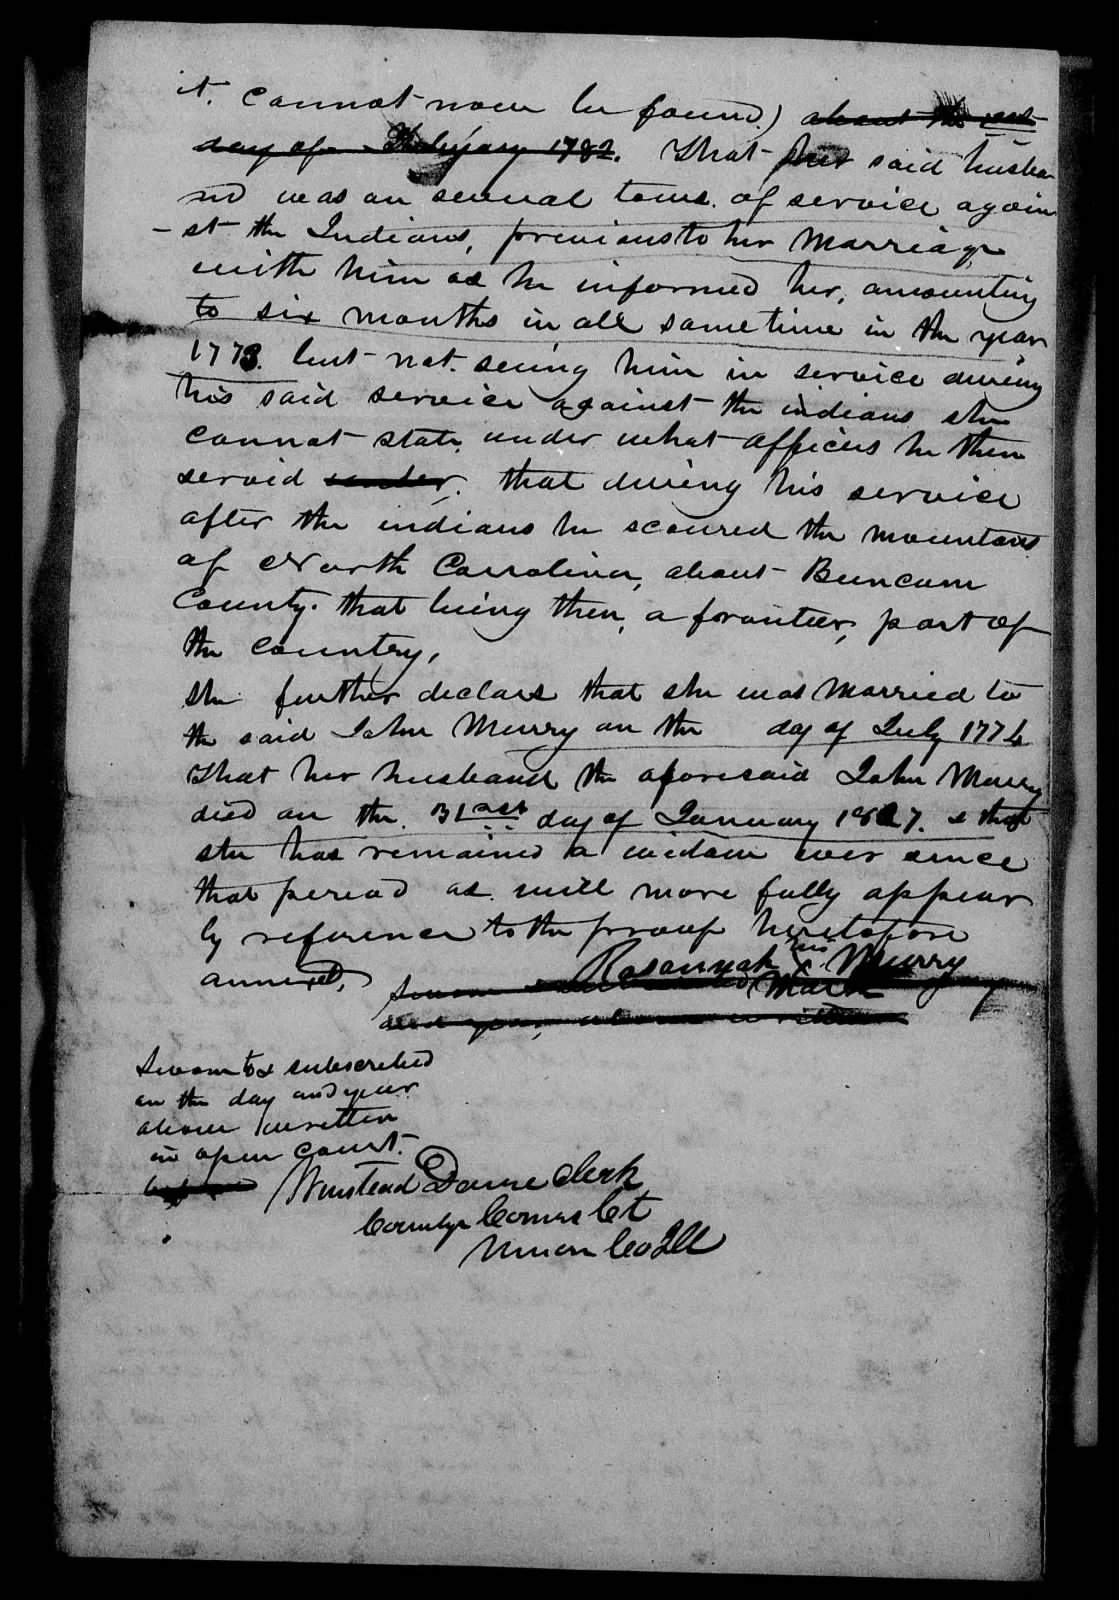 it. cannot now be found.) about the last
day of February 1782. That her said husba
nd was on several tours of service again
- st the Indians, previous to her Marriage
with him as he informed her, amounting
to six months in all sometime in the year
1773. but not seeing him in service during
his said service against the indians she
cannot state under what officers he then
servid under. that during his service
after the indians he scoured the mountains
of North Carrolina, about Buncum
County. that being then, a frontier, part of
the country,
she further declares that she was Married to
the said John Murry on the day of July 1774
That her husband the aforesaid John Murry
died on the. 31ast day of January 1827. & that
she has remained a widow ever since
that period as will more fully appear
by reference to the proof heretofore
annexed,
Rosannah X Murry
his
Mark
Sworn
and year, above written
Sworn to & subscribed
on the day and year
above written
in open court.
Winstead Davie Clerk
County Comrs Ct
Union Co Ill